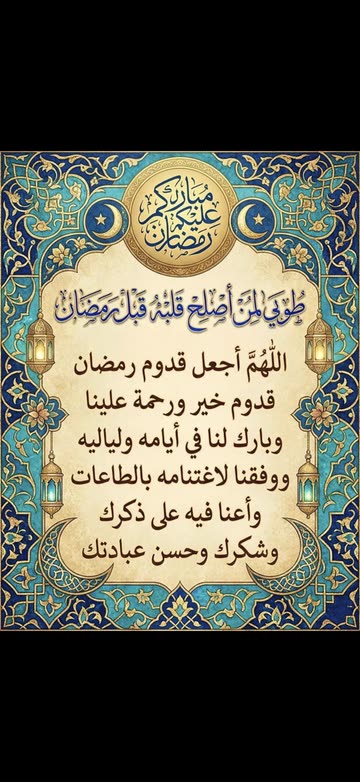 مبارك
عليكم
رمضان
طوبى لمن أصلح قلبه قبل رمضان
اللهُمَّ أجعل قدوم رمضان
قدوم خير ورحمة علينا
وبارك لنا في أيامه ولياليه
ووفقنا لاغتنامه بالطاعات
وأعنا فيه على ذكرك
وشكرك وحسن عبادتك